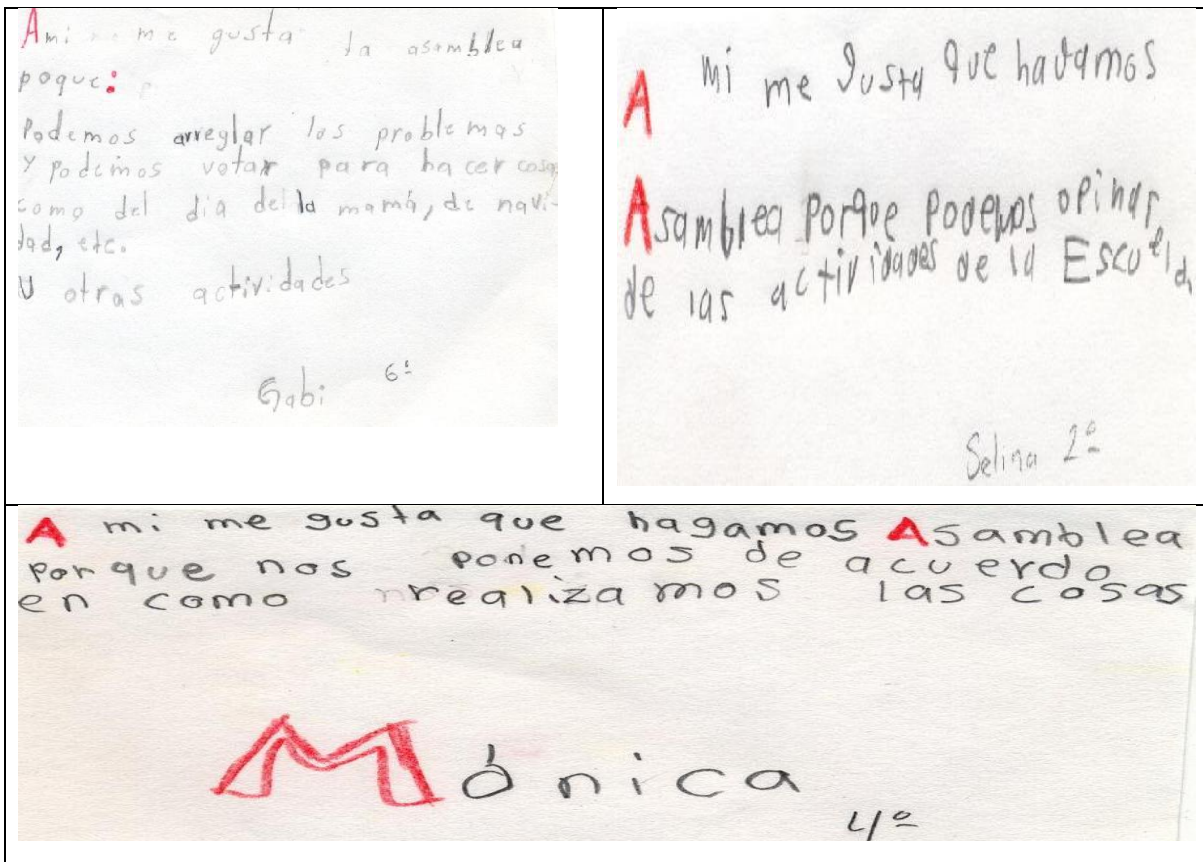 Ami me gusta la asamblea
poque:
Podemos arreylar los problemas
y podemos votar para hacer cosas
como del dia del la mamá, de navi-
dad, etc.
U otras actividades
Gabi 6º
A mi me gusta que hagamos
Asamblea porque podemos opinar
de las actividades de la Escuela.
Selina 2º
A mi me gusta que hagamos Asamblea
porque nos ponemos de acuerdo
en como realizamos las cosas
Mónica
4º